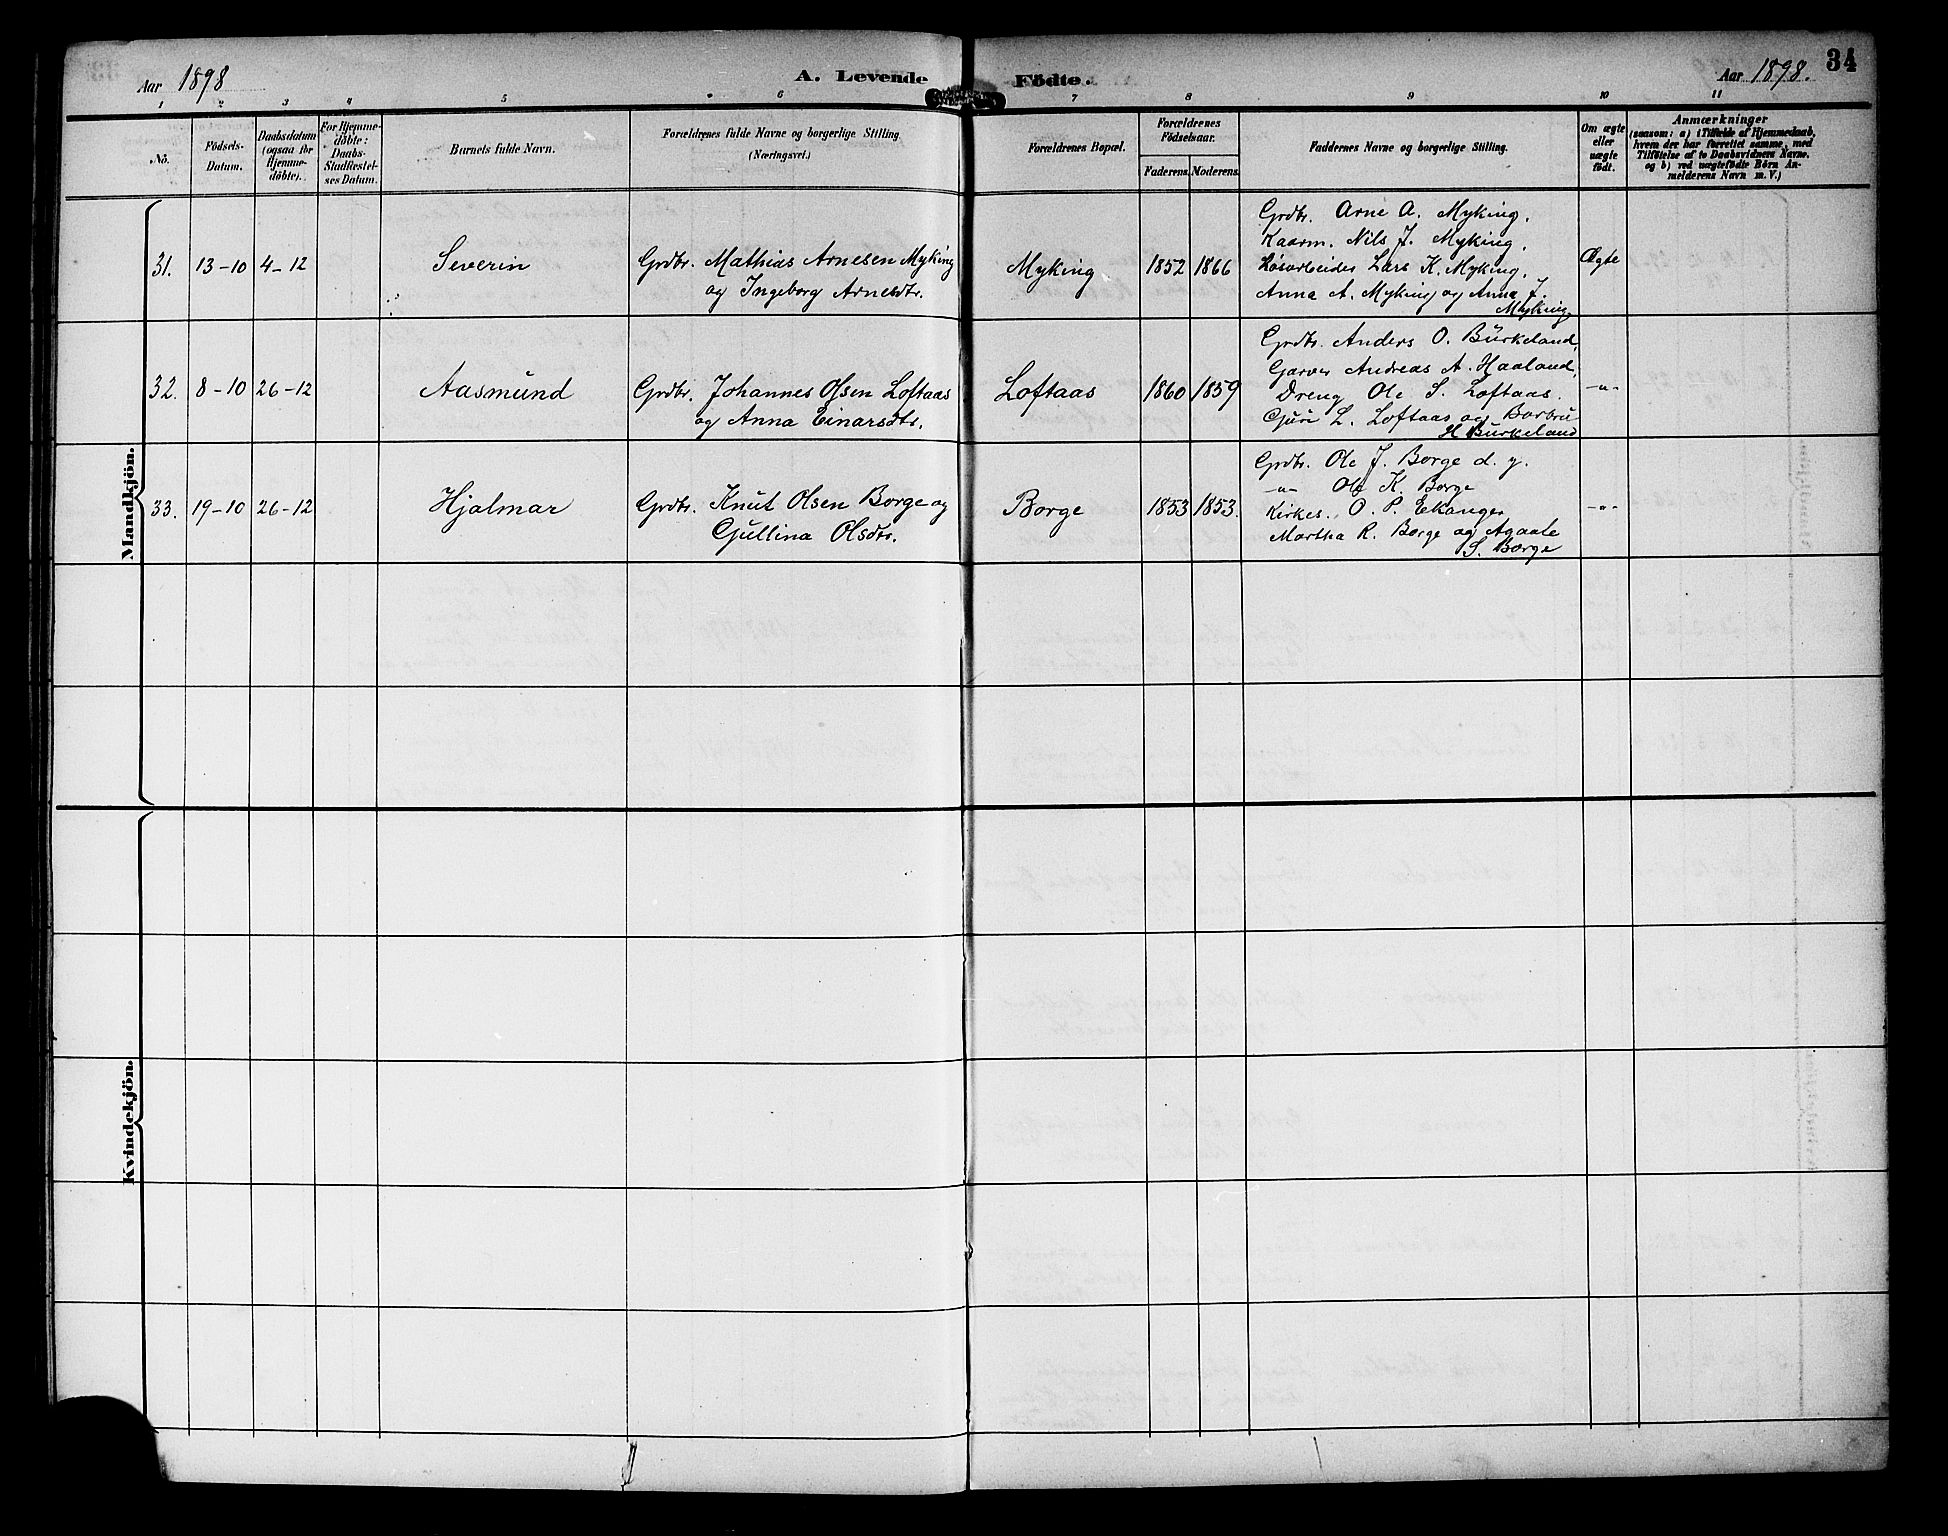 Aar 1898
A. Levende Födte.
Aar 1898.
34
1 2 3 4 5 6 7 8 9 10 11
No.
Födsels-
Datum.
Daabsdatum
(ogsaa for
Hjemme-
döbte).
For Hjemme-
döbte:
Daabs-
Stadfæstel-
ses Datum.
Barnets fulde Navn.
Forældrenes fulde Navne og borgerlige Stilling.
(Næringsvei.)
Forældrenes Bopæl.
Forældrenes
Födselsaar.
Faderens. Moderens.
Faddernes Navne og borgerlige Stilling.
Om ægte
eller
uægte
födt.
Anmærkninger
(saasom: a) i Tilfælde af Hjemmedaab,
hvem der har forrettet samme, med
Tilföielse af to Daabsvidners Navne,
og b) ved uægtefödte Börn An-
melderens Navn m. V.)
Mandkjön.
31. 13-10 4-12
Severin
Grdbr. Mathias Arnesen Myking
og Ingeborg Arnesdtr.
Myking
1852 1866
Grdbr. Arne A. Myking,
Kaarm. Nils J. Myking,
Løsarbeider Lars K. Myking,
Anna A. Myking og Anna J.
Myking
Ægte
32. 8-10 26-12
Aasmund
Grdbr. Johannes Olsen Loftaas
og Anna Einarsdtr.
Loftaas
1860 1859
Grdbr. Anders O. Burkeland,
Garver Andreas A. Haaland,
Dreng Ole S. Loftaas.
Guri L. Loftaas og Barbru
H. Burkeland
-"-
33. 19-10 26-12
Hjalmar
Grdbr. Knut Olsen Borge og
Gullina Olsdtr.
Borge
1853 1853.
Grdbr. Ole J. Borge d. y.
-"- Ole K. Borge
Kirkes. O. P. Ekanger
Martha R. Borge og Agaate
S. Borge
-"-
Kvindekjön.